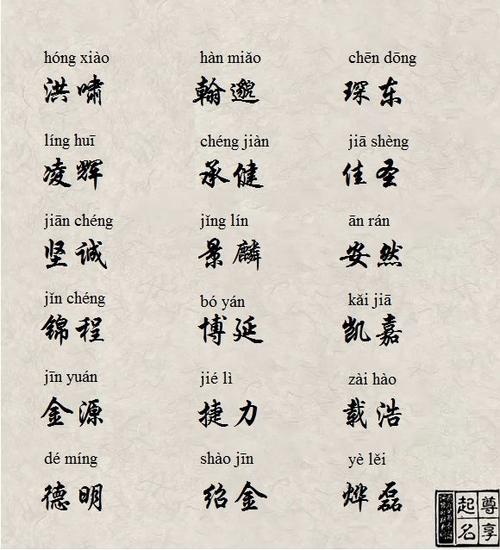 hóng xiào hàn miǎo chēn dōng
洪啸 翰邈 琛东
líng huī chéng jiàn jiā shèng
凌辉 承健 佳圣
jiān chéng jǐng lín ān rán
坚诚 景麟 安然
jǐn chéng bó yán kǎi jiā
锦程 博延 凯嘉
jīn yuán jié lì zài hào
金源 捷力 载浩
dé míng shào jīn yè lěi
德明 绍金 烨磊
尊享
起名